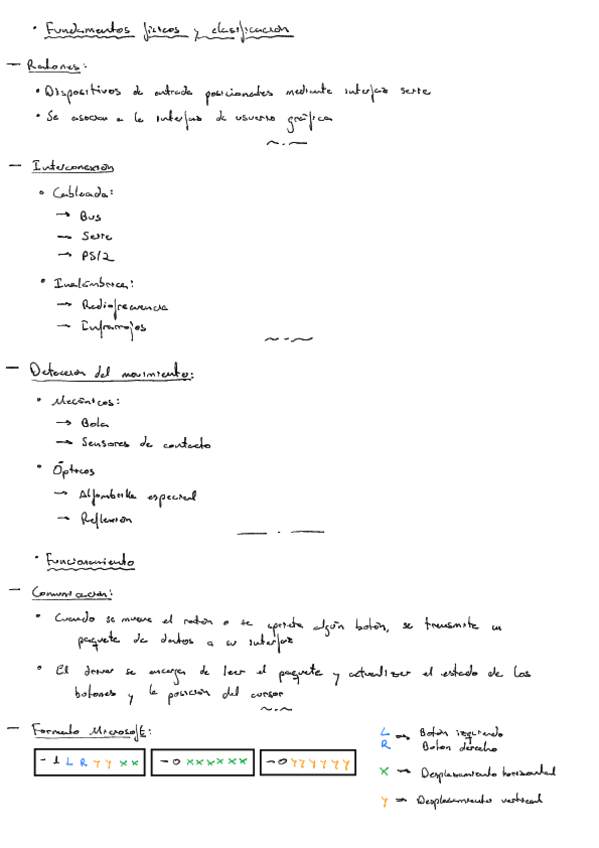 • Fundamentos físicos y clasificación
— Ratones:
• Dispositivos de entrada posicionales mediante interfaz serie
• Se asocian a la interfaz de usuario gráfica
— Interconexión
• Cableada:
→ Bus
→ Serie
→ PS/2
• Inalámbrica:
→ Radiofrecuencia
→ Infrarrojos
— Detección del movimiento:
• Mecánicos:
→ Bola
→ Sensores de contacto
• Ópticos
→ Alfombrilla especial
→ Reflexión
• Funcionamiento
— Comunicación:
• Cuando se mueve el ratón o se aprieta algún botón, se transmite un
paquete de datos a su interfaz
• El driver se encarga de leer el paquete y actualizar el estado de los
botones y la posición del cursor
— Formato Microsoft:
L → Botón izquierdo
R Botón derecho
- 1 L R Y Y X X
- 0 X X X X X X
- 0 Y Y Y Y Y Y
X → Desplazamiento horizontal
Y → Desplazamiento vertical